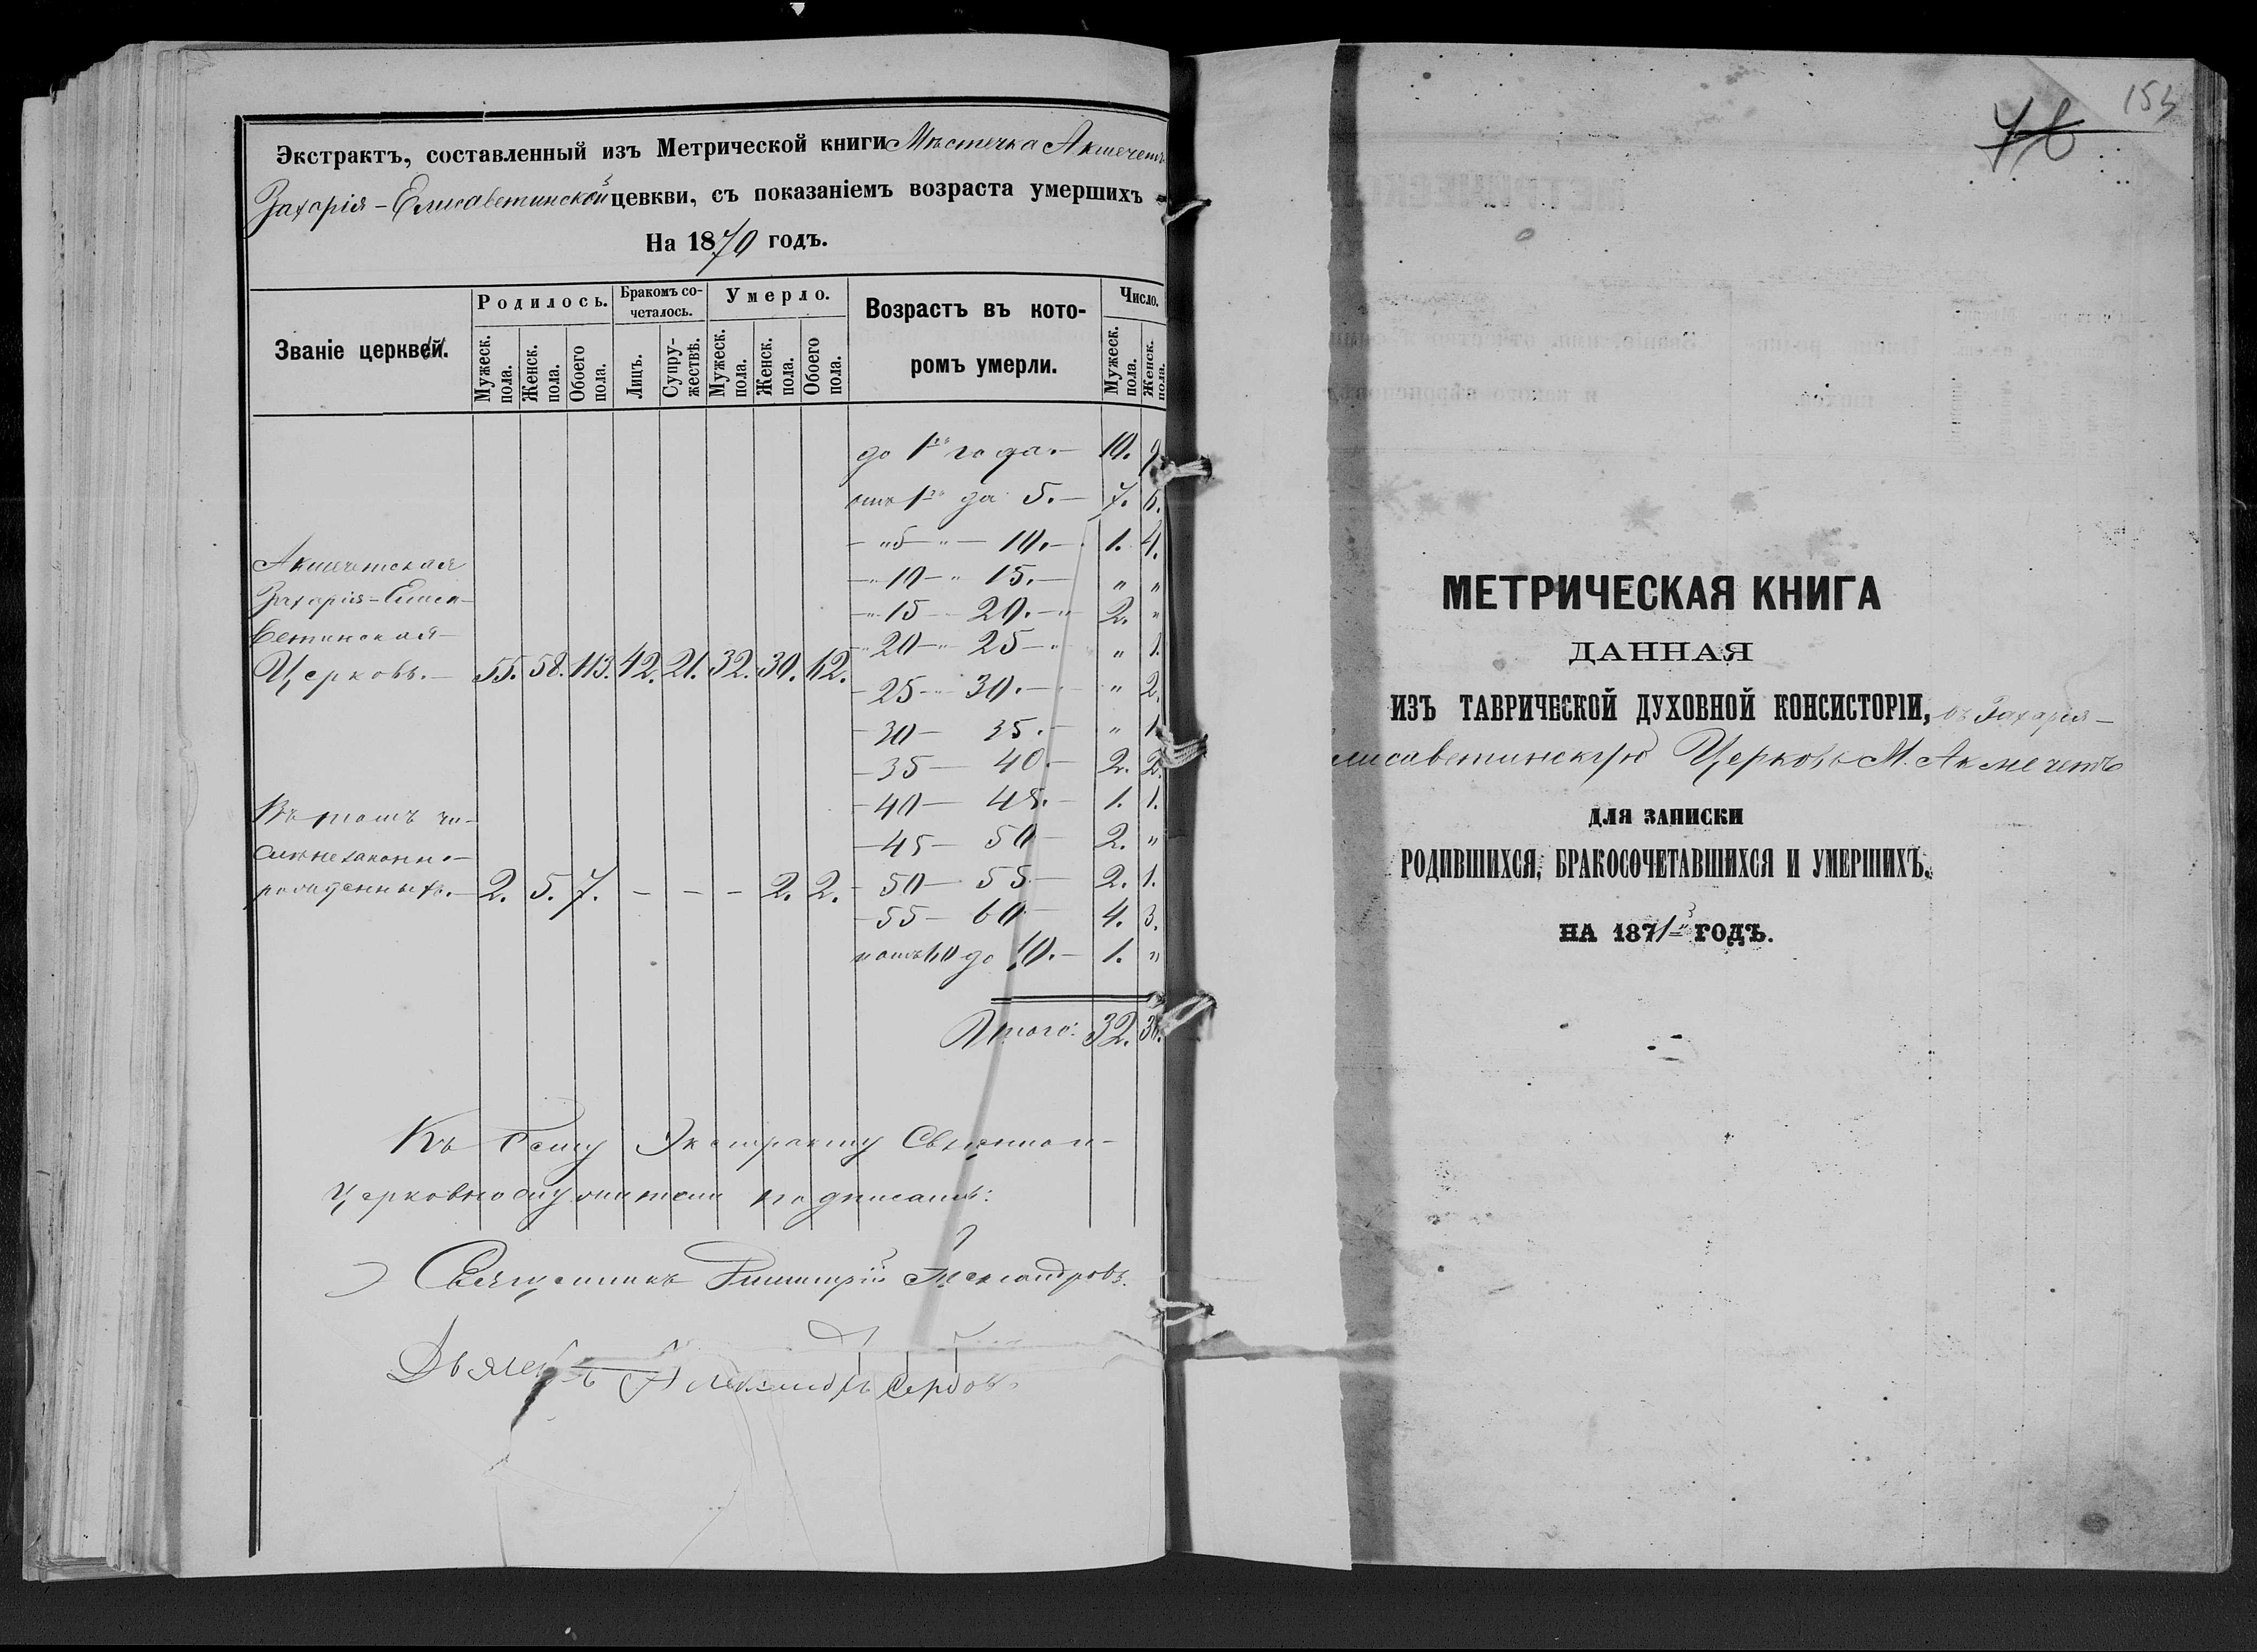 Экстрактъ, составленный изъ Метрической книги Мѣстечка Акмечеть
Захарія-Елисаветинской цевкви, съ показаніемъ возраста умершихъ
На 1870 годъ.
Званіе церквей.
Родилось.
Бракомъ со-
четалось.
Умерло.
Возрастъ въ кото-
ромъ умерли.
Число.
Мужеск. пола.
Женск. пола.
Обоего пола.
Лицъ.
Супру-
жествъ.
Мужеск. пола.
Женск. пола.
Обоего пола.
Мужеск. пола.
Женск. пола.
до 1го года.— 10. 9.
отъ 1го до 5.— 7. 6.
— " 5 — " — 10.— 1. 4.
— " 10 — " 15.— " "
— " 15 — 20.— " 2. "
— " 20 — " 25 — " " 1.
— 25 — " 30.— " 2.
— 30 — 35.— " 1.
— 35 — 40.— 2. 2.
— 40 — 45.— 1. 1.
— 45 — 50 — 2. "
— 50 — 55.— 2. 1.
— 55 — 60 — 4. 3.
" отъ 60 до 70.— 1. "
Итого: 32. 30.
Акмечетская
Захарія-Елиса-
ветинская
Церковь.— 55. 58. 113. 42. 21. 32. 30. 62.
Въ томъ чи-
слѣ незаконно-
рожденныхъ.— 2. 5. 7. — — — 2. 2.
Къ сему Экстракту Священно-
Церковнослужители подписали:
Священникъ Димитрій Александровъ.
Дьячекъ Александръ Сербовъ
153
76
МЕТРИЧЕСКАЯ КНИГА
ДАННАЯ
ИЗЪ ТАВРИЧЕСКОЙ ДУХОВНОЙ КОНСИСТОРІИ, въ Захарія-
лисаветинскую Церковь М. Акмечеть
ДЛЯ ЗАПИСКИ
РОДИВШИХСЯ, БРАКОСОЧЕТАВШИХСЯ И УМЕРШИХЪ.
НА 1871й ГОДЪ.